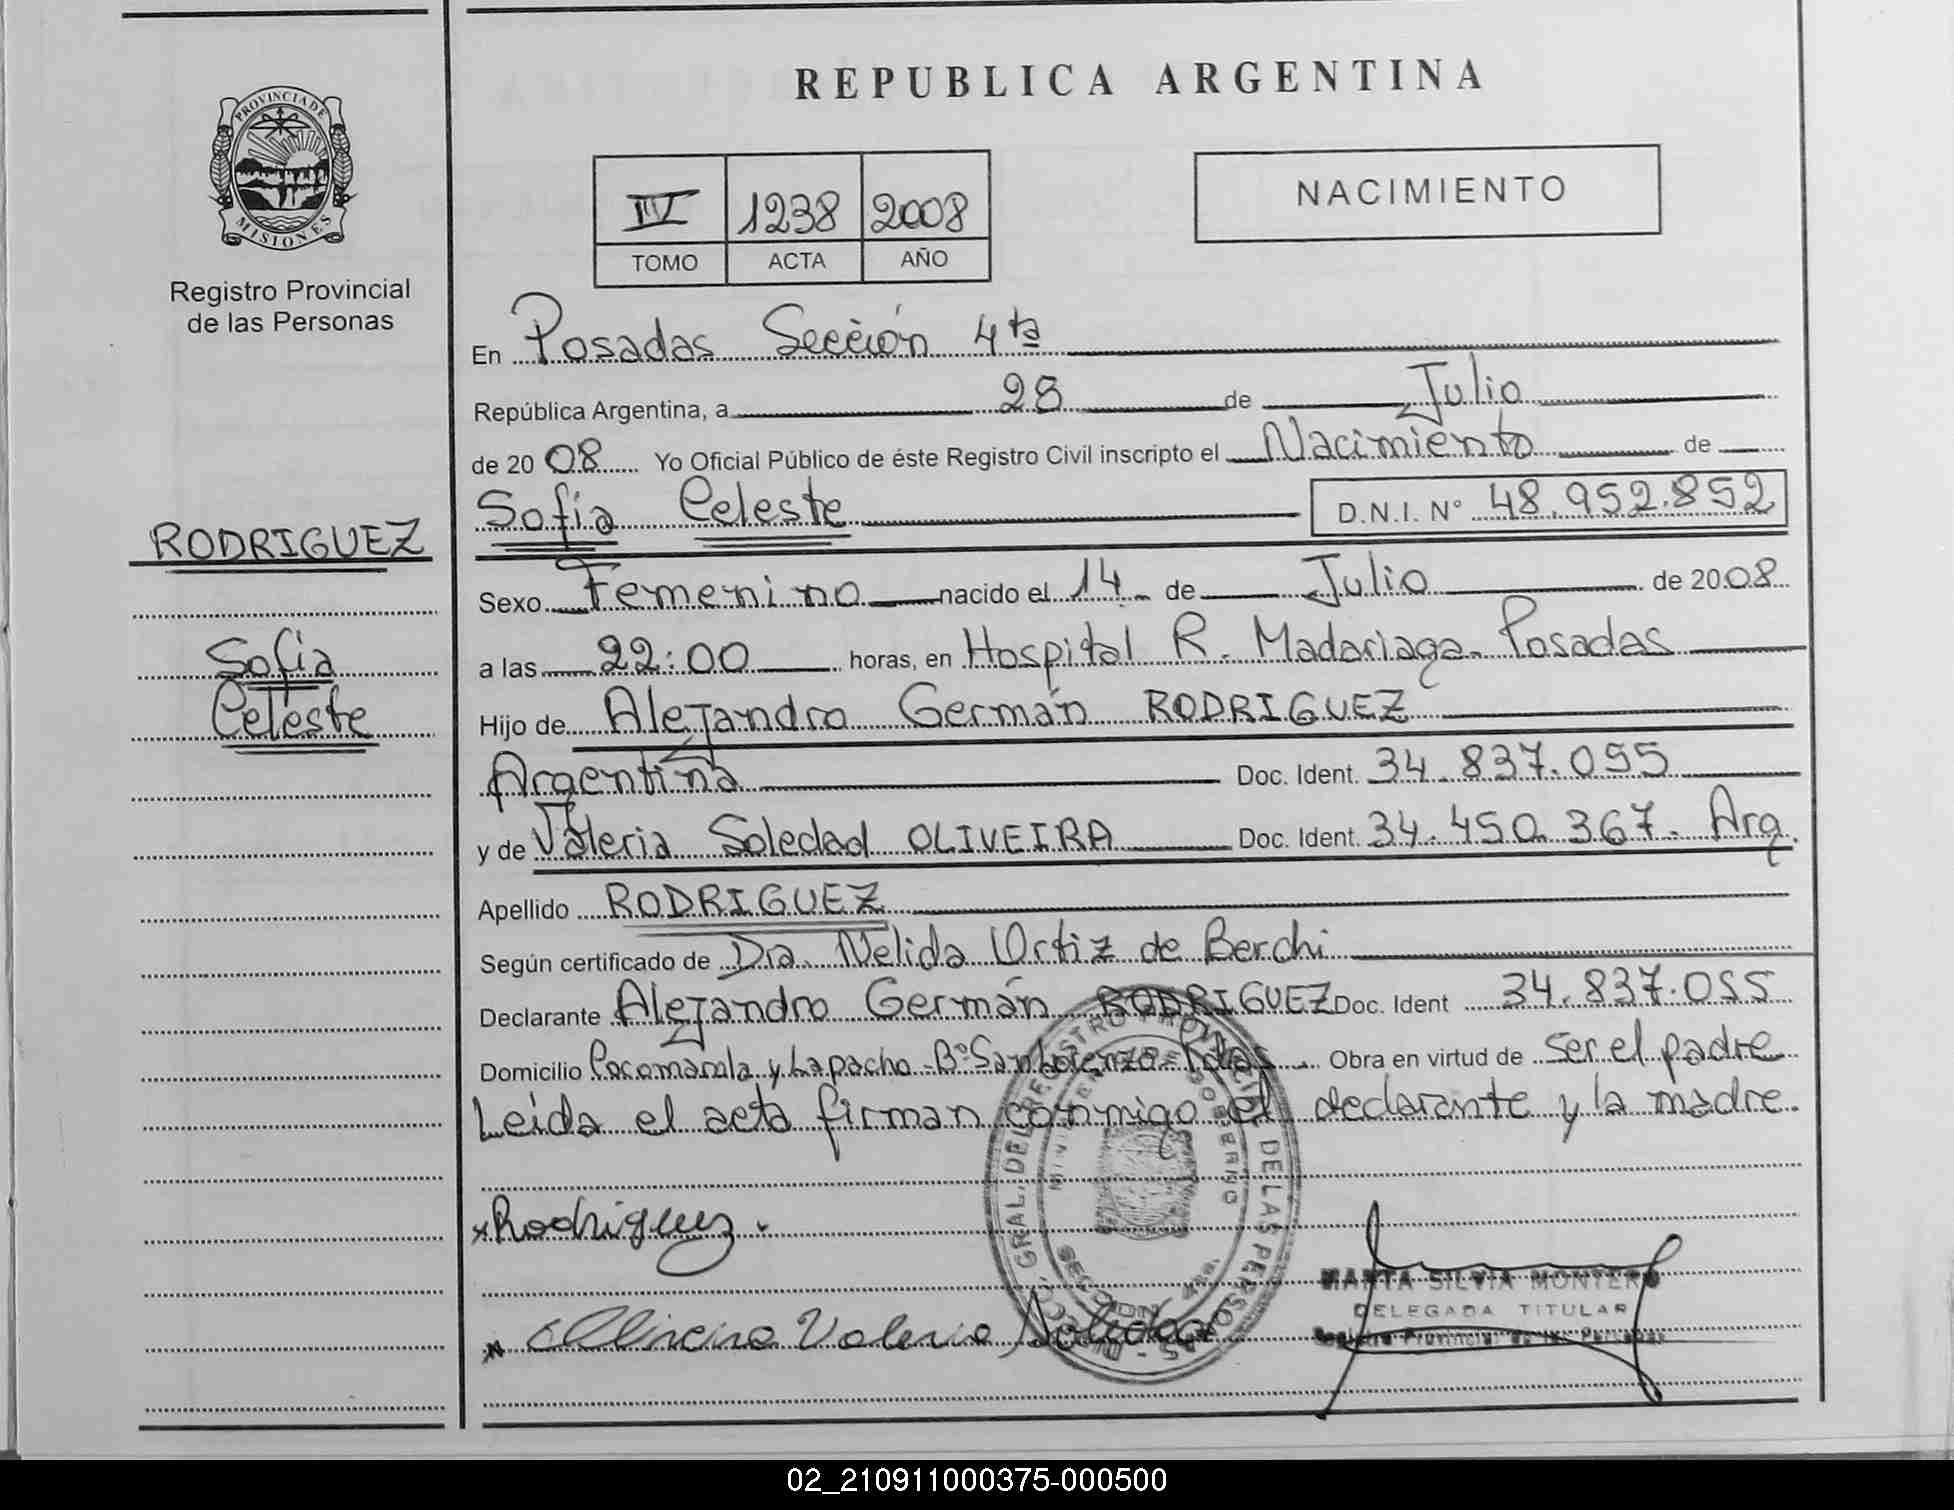 PROVINCIA DE
MISIONES
Registro Provincial
de las Personas
RODRIGUEZ
Sofia
Celeste
REPUBLICA ARGENTINA
IV 1238 2008
TOMO ACTA AÑO
NACIMIENTO
En Posadas Sección 4ta
República Argentina, a 28 de Julio
de 2008 Yo Oficial Público de éste Registro Civil inscripto el Nacimiento de
Sofia Celeste D.N.I. N° 48.952.852
Sexo Femenino nacido el 14 de Julio de 2008
a las 22:00 horas, en Hospital R. Madariaga. Posadas
Hijo de Alejandro Germán RODRIGUEZ
Argentina Doc. Ident. 34.837.055
y de Valeria Soledad OLIVEIRA Doc. Ident. 34.450.367. Arg.
Apellido RODRIGUEZ
Según certificado de Dra. Nelida Ortiz de Berchi
Declarante Alejandro Germán RODRIGUEZ Doc. Ident 34.837.055
Domicilio Cocomarola y Lapacho - B° San Lorenzo - Pdas. Obra en virtud de ser el padre
Leida el acta firman conmigo el declarante y la madre.
x Rodriguez.
x Oliveira Valeria Soledad
MARTA SILVIA MONTERO
DELEGADA TITULAR
Registro Provincial de las Personas
02_210911000375-000500